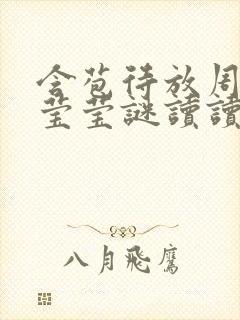 含苞待放周
莹莹謎讀讀
八月飛鷹